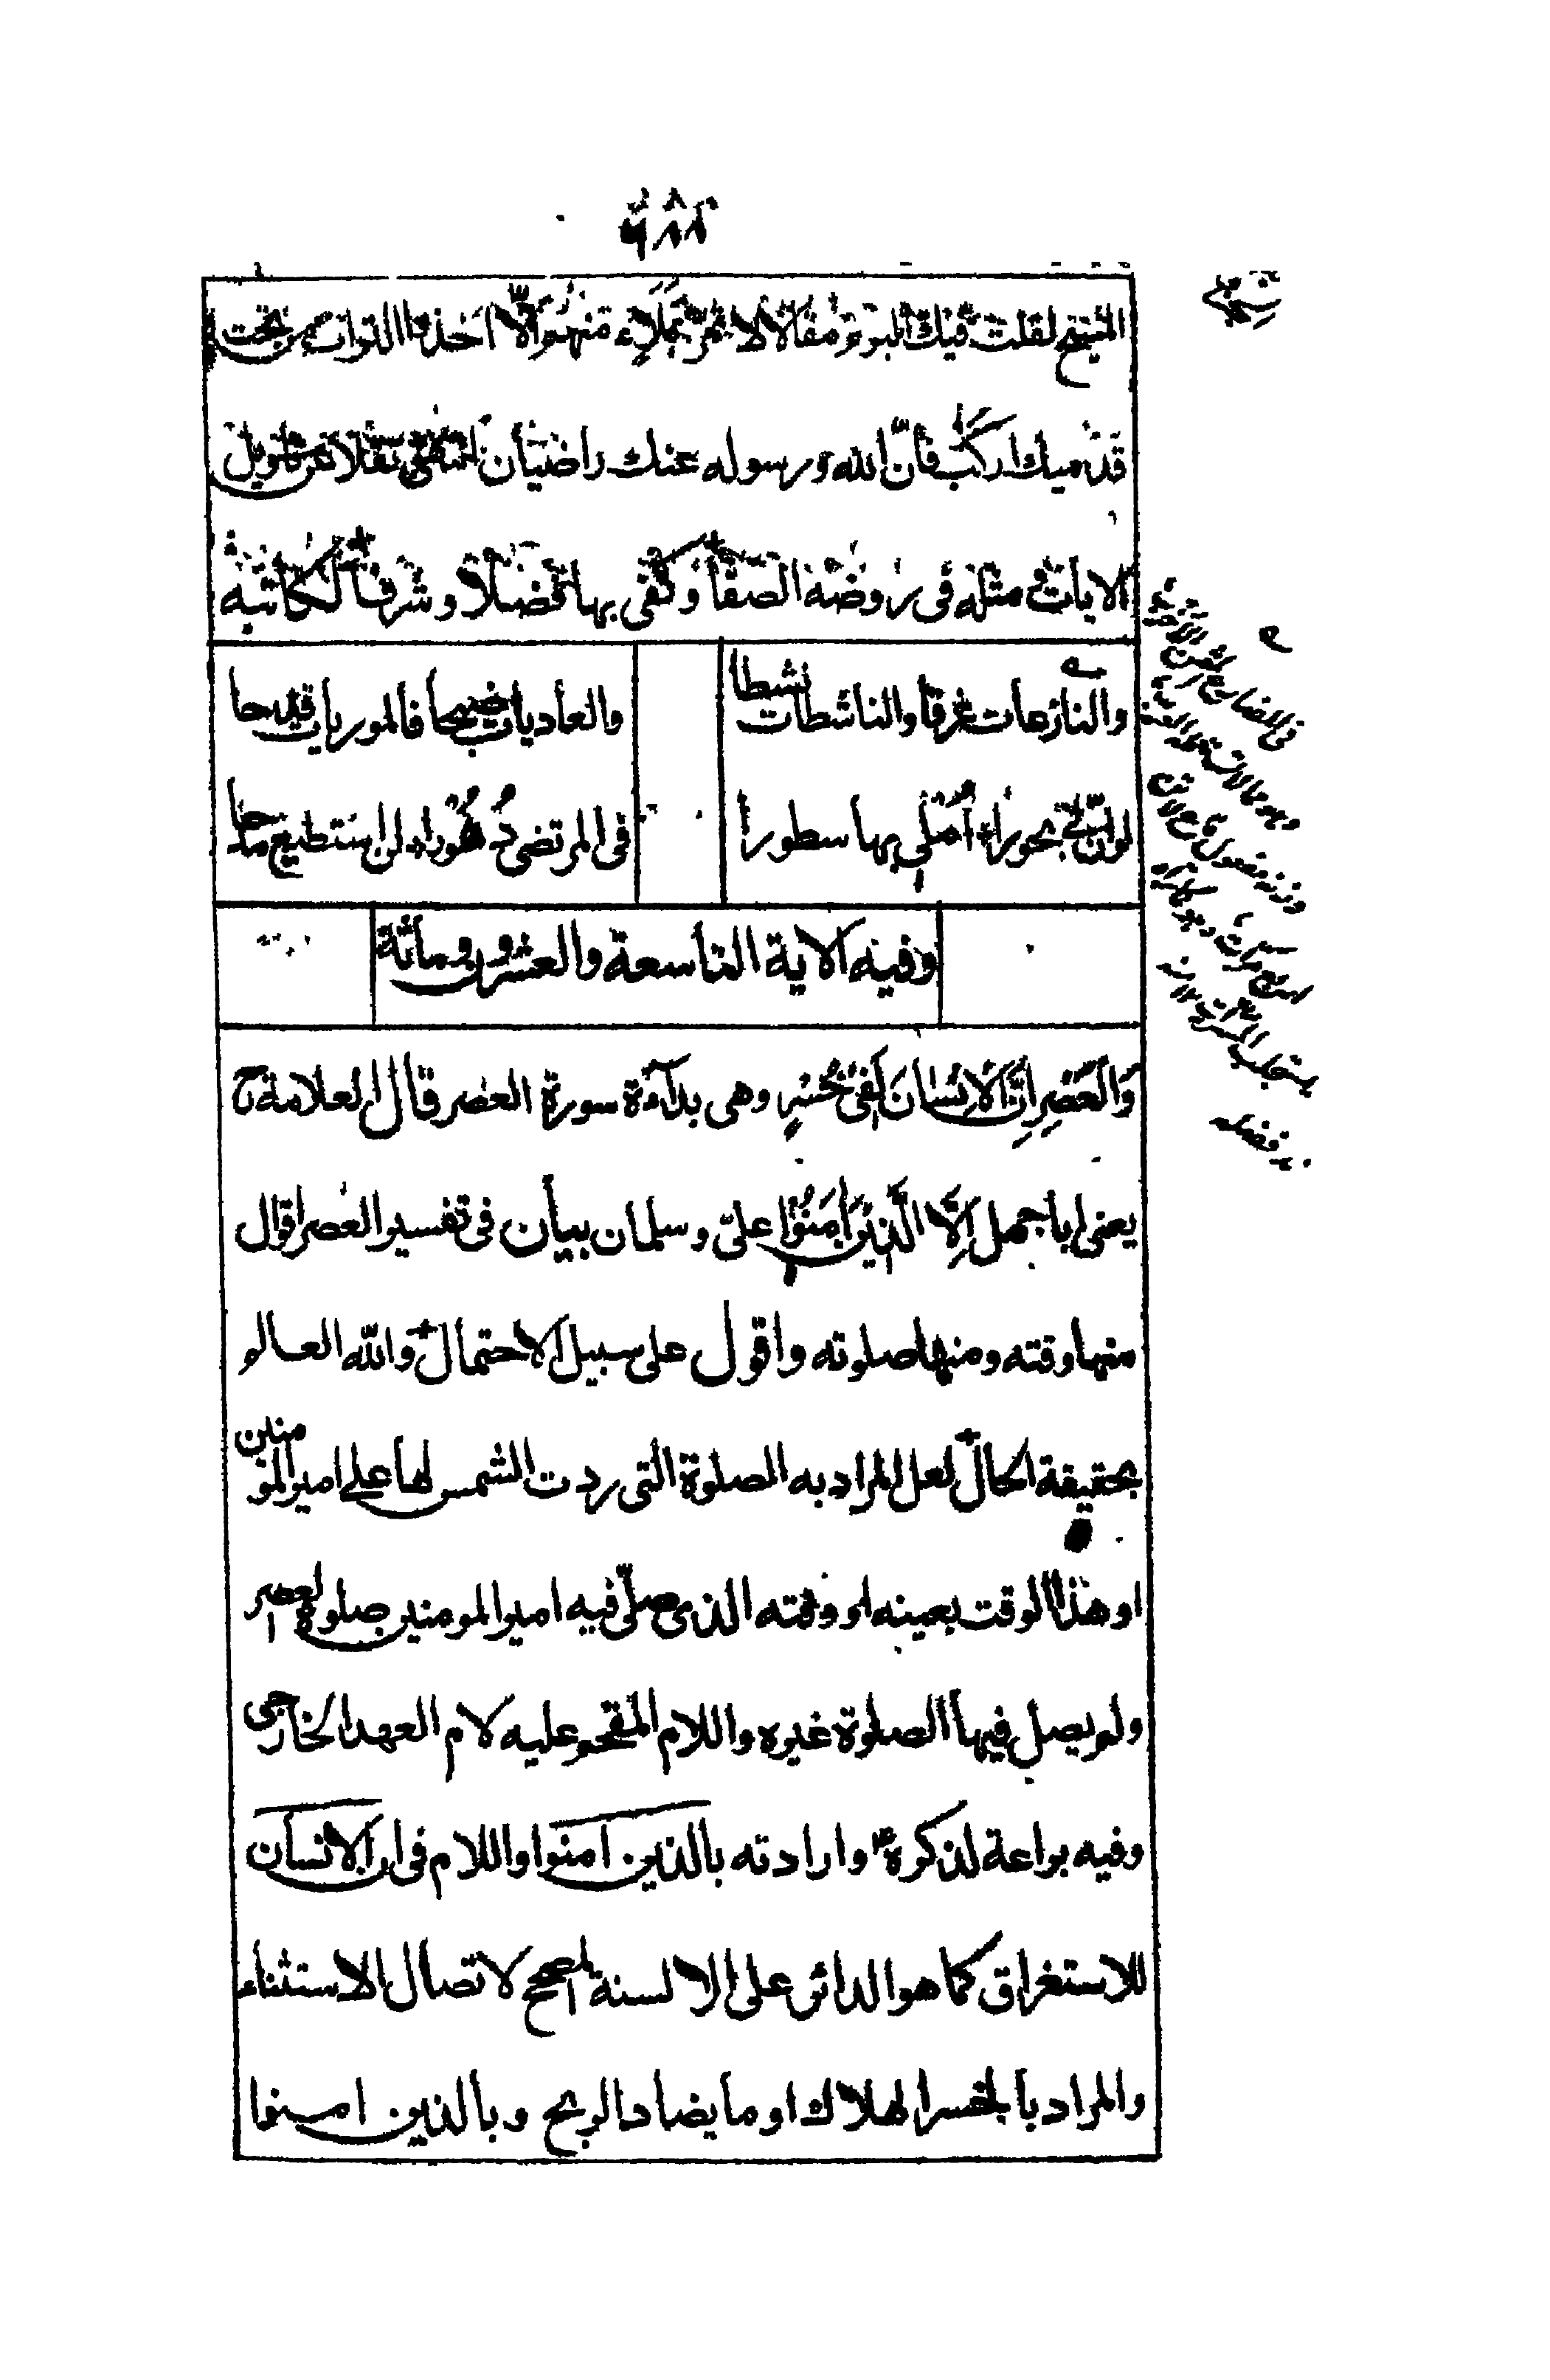 المسيح لقلت فيك اليوم مقالا لا تمر بملاء منهم الا اخذوا التراب من تحت
قدميك اركب فان الله ورسوله عنك راضيان انتهى نقلا عن تاويل
الايات و مثله فى روضة الصفا وكفى بها فضلا وشرفا لكاتبه
والنازعات غرقا والناشطات نشطا
والعاديات ضبحا فالموريات قدحا
لو ان لى بحورا املى بها سطورا
فى المرتضى دهورا لن استطيع مدحا
وفيه الاية التاسعة والعشرون ومائة
وَالْعَصْرِ اِنَّ الْاِنْسَانَ لَفِىْ خُسْرٍ وهى بداءة سورة العصر قال العلامة ح
يعنى ابا جهل اِلَّا الَّذِيْنَ اٰمَنُوْا علىّ وسلمان بيان فى تفسير العصر اقوال
منها وقته ومنها صلوته واقول على سبيل الاحتمال والله العالم
بحقيقة الحال لعل المراد به الصلوة التى ردت الشمس لها على امير المومنين
او هذا الوقت بعينه او وقته الذى صلّى فيه امير المومنين صلوة العصر
ولم يصل فيها الصلوة غيره واللام المقحم عليه لام العهد الخارجى
وفيه براعة لذكره وارادته بالذين امنوا واللام فى ان الانسان
للاستغراق كما هو الدائر على الالسنة المصحح لاتصال الاستثناء
والمراد بالخسر الهلاك او ما يضاد الربح وبالذين امنوا